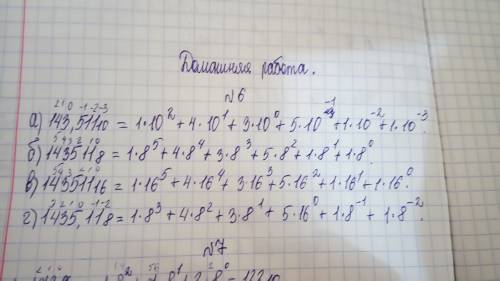 Домашняя работа.
№6
2 1 0 -1 -2 -3
а) 143,511₁₀ = 1·10² + 4·10¹ + 3·10⁰ + 5·10⁻¹ + 1·10⁻² + 1·10⁻³.
5 4 3 2 1 0
б) 143511₈ = 1·8⁵ + 4·8⁴ + 3·8³ + 5·8² + 1·8¹ + 1·8⁰.
5 4 3 2 1 0
в) 143511₁₆ = 1·16⁵ + 4·16⁴ + 3·16³ + 5·16² + 1·16¹ + 1·16⁰.
3 2 1 0 -1 -2
г) 1435,11₈ = 1·8³ + 4·8² + 3·8¹ + 5·16⁰ + 1·8⁻¹ + 1·8⁻².
№7